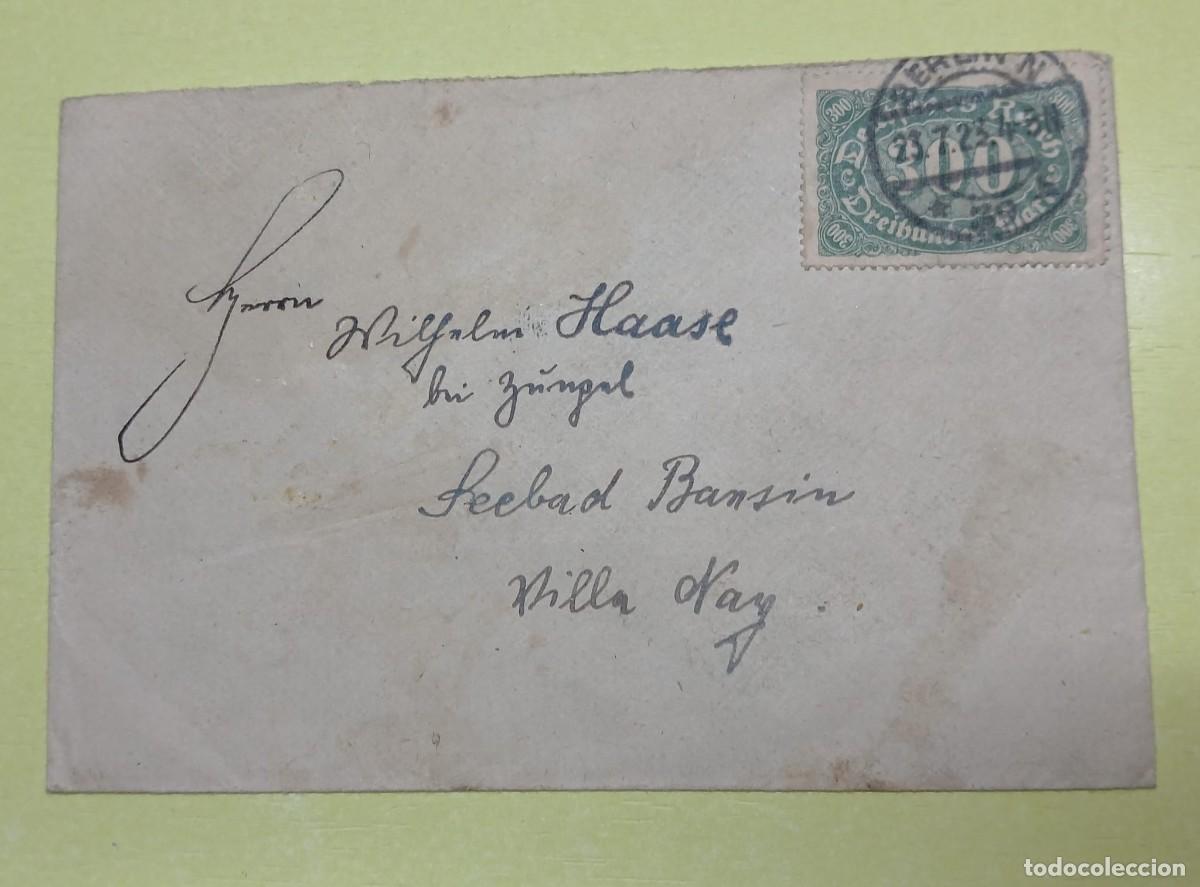 BERLIN N
23.7.23.
300 300
Reich
300
Dreihundert Mark
300 300
Herrn
Wilhelm Haase
bei
Seebad Bansin
Villa Nay
todocoleccion